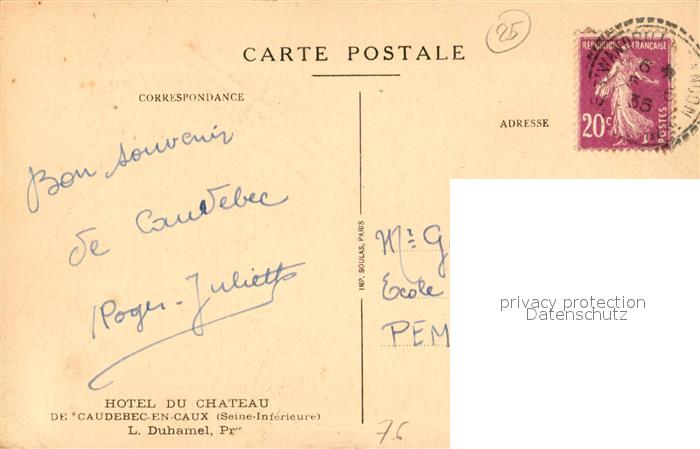 25
CARTE POSTALE
CORRESPONDANCE
ADRESSE
REPUBLIQUE FRANÇAISE
20c
POSTES
Bon souvenir
de Caudebec
Roger-Juliette
IMP. SOULAS, PARIS
Mr G
Ecole
PEM
privacy protection
Datenschutz
HOTEL DU CHATEAU
DE CAUDEBEC-EN-CAUX (Seine-Inférieure)
L. Duhamel, Prre
76